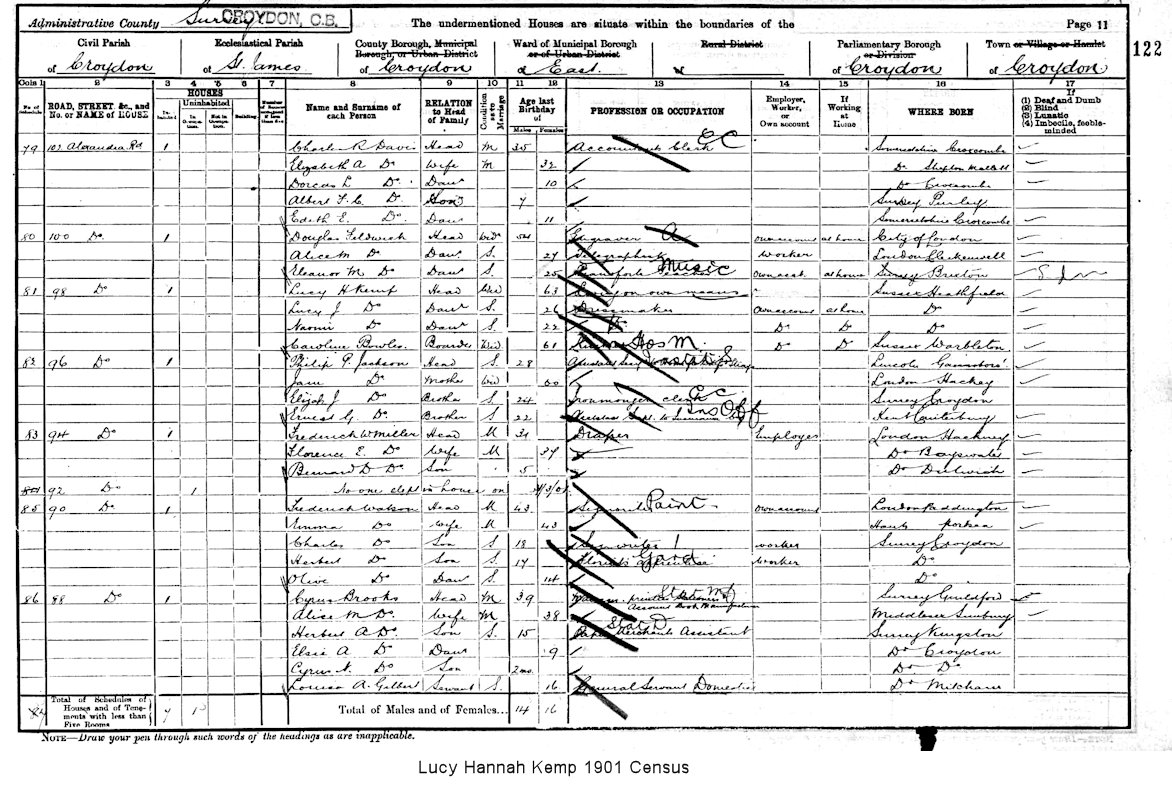 Administrative County Surrey CROYDON, C.B. The undermentioned Houses are situate within the boundaries of the Page 11
Civil Parish Ecclesiastical Parish County Borough, Municipal Borough, or Urban District Ward of Municipal Borough or of Urban District Rural District Parliamentary Borough or Division Town or Village or Hamlet
of Croydon of St. James of Croydon of East of of Croydon of Croydon
122
Cols 1 2 3 4 5 6 7 8 9 10 11 12 13 14 15 16 17
No. of Schedule ROAD, STREET, &c., and No. or NAME of HOUSE HOUSES Inhabited Uninhabited In Occupation Not in Occupation Building Name and Surname of each Person RELATION to Head of Family Condition as to Marriage Age last Birthday of Males Females PROFESSION OR OCCUPATION Employer, Worker, or Own account If Working at Home WHERE BORN If (1) Deaf and Dumb (2) Blind (3) Lunatic (4) Imbecile, feeble-minded
79 102 Alexandra Rd 1 Charles R Davis Head M 35 Accountants Clerk Somersetshire Croscombe
Elizabeth A Do Wife M 32 Do Shepton Mallett
Dorcas L Do Daur 10 Do Croscombe
Albert F. C. Do Son 7 Surrey Purley
Edith E. Do Daur 11 Somersetshire Croscombe
80 100 Do 1 Douglas Feldwick Head Widr 54 Engraver own account at home City of London
Alice M Do Daur S. 27 Telegraphist worker London Clerkenwell
Eleanor M Do Daur S 25 Pianoforte Music own acct. at home Surrey Brixton
81 98 Do 1 Lucy H Kemp Head Wid 63 Living on own means Sussex Heathfield
Lucy J Do Daur S 26 Dressmaker own account at home Do
Naomi Do Daur S. 22 Do Do Do
Caroline Bowles Boarder Wid 61 Do Do Sussex Warbleton
82 96 Do 1 Philip P. Jackson Head S 28 Lincoln
Jane Do Mother Wid 60 London Hackney
J Do Brother S 24 Ironmongers clerk Surrey Croydon
Ernest G. Do Brother S 22 Kent Canterbury
83 94 Do 1 Frederick W Miller Head M 31 Draper Employer London Hackney
Florence E. Do Wife M 37 Do Bayswater
Bernard D Do Son 5 Do Dulwich
84 92 Do 1 No one slept in house on 31/3/01
85 90 Do 1 Frederick Watson Head M 43 Paint own account London Paddington
Emma Do Wife M 43 Hants
Charles Do Son S 18 worker Surrey Croydon
Herbert Do Son S 17 Florists apprentice Gard worker Do
Olive Do Daur S. 14 Do
86 88 Do 1 Cyrus Brooks Head M 39 Account Book Surrey Guildford
Alice M Do Wife M 38 Middlesex Sunbury
Herbert A Do Son S. 15 Paper Merchants Assistant Surrey Kingston
Elsie A Do Daur 9 Do Croydon
Cyrus N. Do Son 2mo. Do Do
Louisa A. Gilbert Servant S. 16 General Servant Domestic Do Mitcham
Total of Schedules of Houses and of Tenements with less than Five Rooms 7 1 Total of Males and of Females... 14 16
NOTE—Draw your pen through such words of the headings as are inapplicable.
Lucy Hannah Kemp 1901 Census